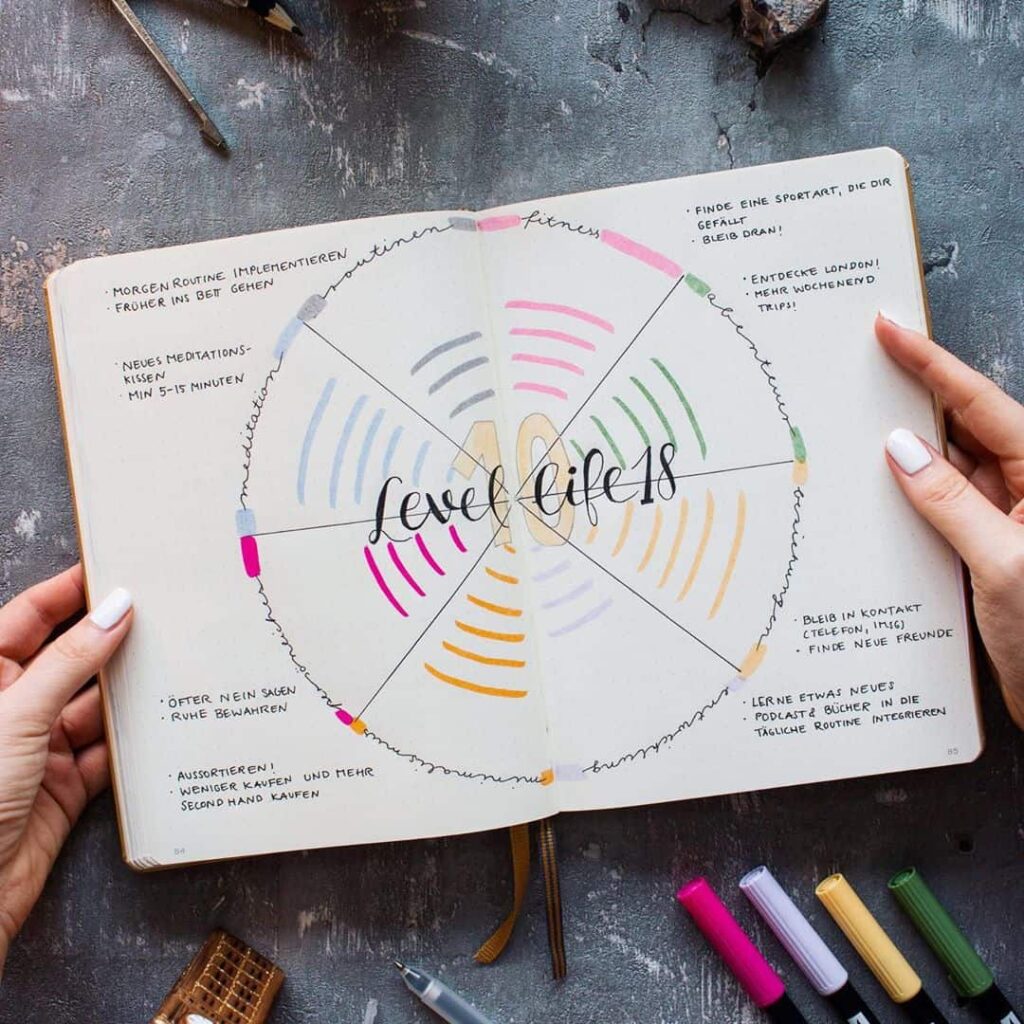 · MORGENROUTINE IMPLEMENTIEREN
· FRÜHER INS BETT GEHEN
· NEUES MEDITATIONS-
KISSEN
· MIN 5-15 MINUTEN
routinen
fitness
· FINDE EINE SPORTART, DIE DIR
GEFÄLLT
· BLEIB DRAN!
· ENTDECKE LONDON!
· MEHR WOCHENEND
TRIPS!
meditation
abenteuer
10
Level Life 18
beziehungen
persönlichkeit
minimalismus
entwicklung
· ÖFTER NEIN SAGEN
· RUHE BEWAHREN
· AUSSORTIEREN!
· WENIGER KAUFEN UND MEHR
SECOND HAND KAUFEN
· BLEIB IN KONTAKT
(TELEFON, IMSG)
· FINDE NEUE FREUNDE
· LERNE ETWAS NEUES
· PODCAST & BÜCHER IN DIE
TÄGLICHE ROUTINE INTEGRIEREN
84
85